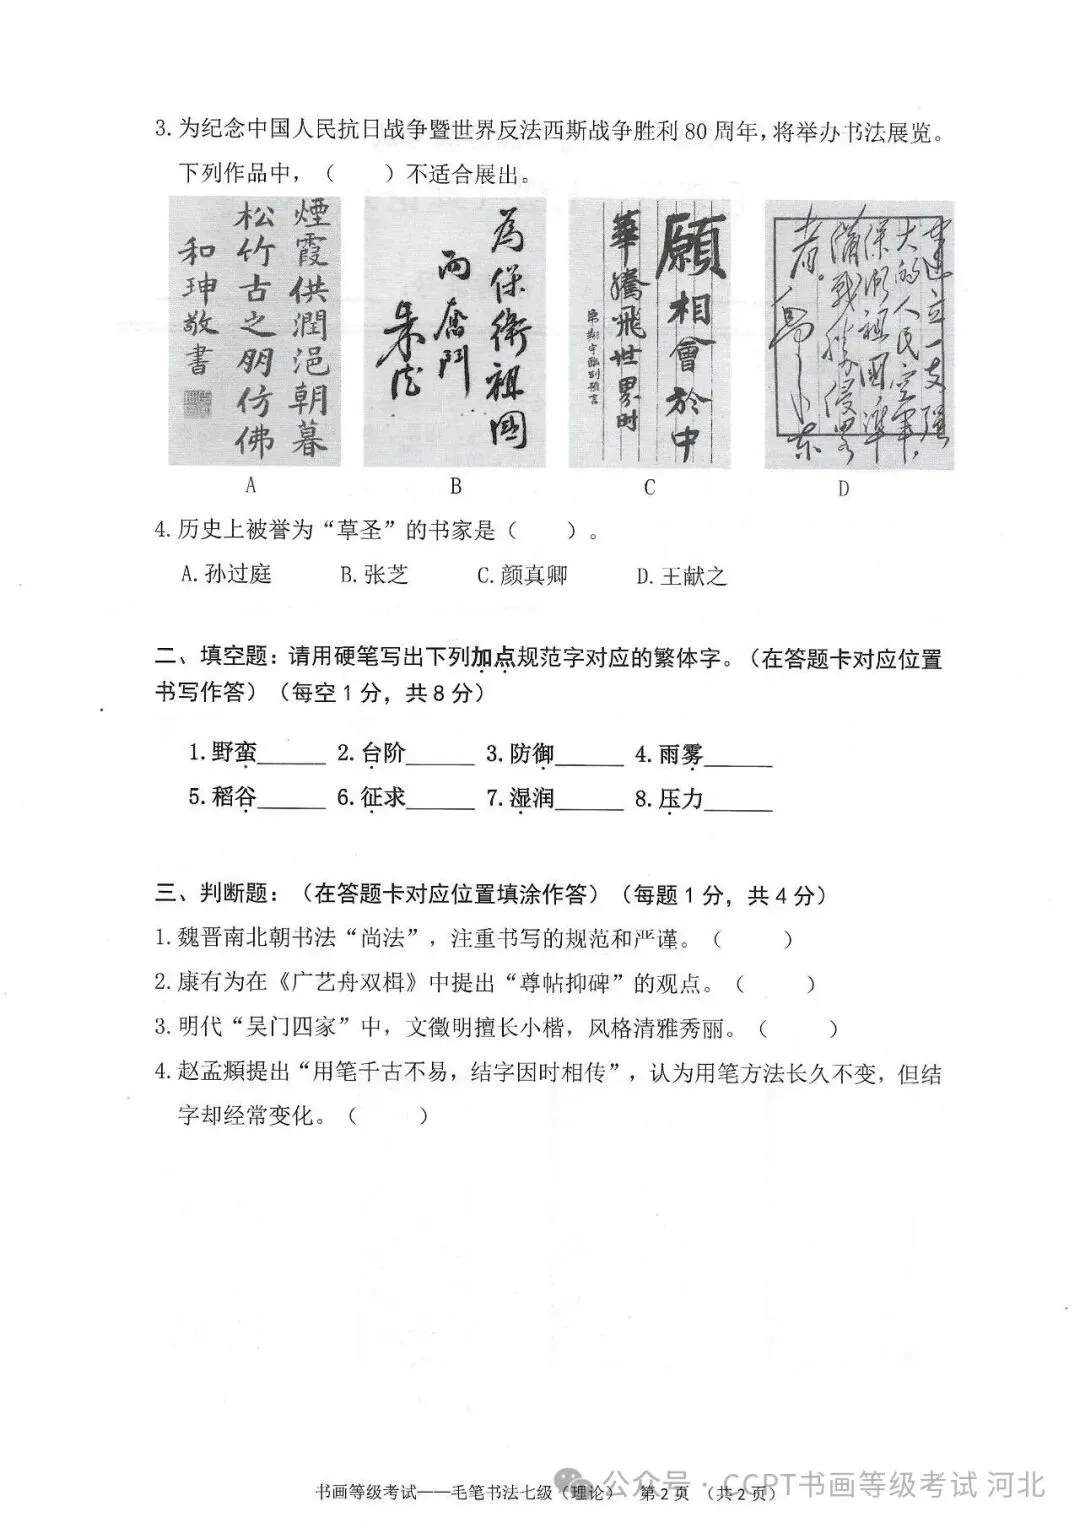 3.为纪念中国人民抗日战争暨世界反法西斯战争胜利80周年，将举办书法展览。
下列作品中，（　　）不适合展出。
煙霞供潤浥朝暮
松竹古之朋仿佛
和珅敬書
為保衛祖國
而奮鬥
朱德
願相會於中
華騰飛世界时
建立一支强
大的人民空軍，
保衛祖國，準
備戰勝侵略
者。
毛泽东
A B C D
4.历史上被誉为“草圣”的书家是（　　）。
A.孙过庭 B.张芝 C.颜真卿 D.王献之
二、填空题：请用硬笔写出下列加点规范字对应的繁体字。（在答题卡对应位置
书写作答）（每空1分，共8分）
1.野蛮______ 2.台阶______ 3.防御______ 4.雨雾______
5.稻谷______ 6.征求______ 7.湿润______ 8.压力______
三、判断题：（在答题卡对应位置填涂作答）（每题1分，共4分）
1.魏晋南北朝书法“尚法”，注重书写的规范和严谨。（　　）
2.康有为在《广艺舟双楫》中提出“尊帖抑碑”的观点。（　　）
3.明代“吴门四家”中，文徵明擅长小楷，风格清雅秀丽。（　　）
4.赵孟頫提出“用笔千古不易，结字因时相传”，认为用笔方法长久不变，但结
字却经常变化。（　　）
书画等级考试——毛笔书法七级（理论） 第2页 （共2页）
公众号·CCPT书画等级考试 河北